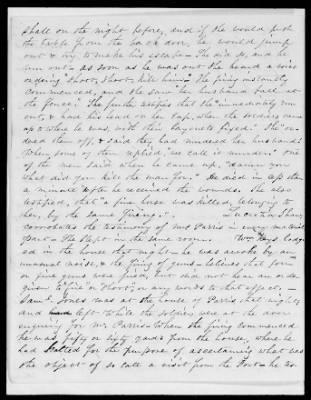 shall on the night before, and if he would push
the table from the back door, he would jump
out & try to make his escape - She did so, and he
run out - as soon as he was out she heard a voice
calling "shoot, shoot, kill him". The firing instantly
commenced, and she saw "her husband fall at
the fence." She further testifies that she "immediately run
out, & had his head on her lap, when the soldiers came
up to where he was, with their bayonets fixed." She "or-
dered them off, & said they had murdered her husband"
When some of them replied, "we call it murder." one
of the men said when he came up, "damn you
what did you kill the man for." He died in less than
a minute after he received the wounds. She also
testified, that "a fine horse was killed, belonging to
her, by the same firing".
corroborates the testimony of Mrs Parris in every material
part - She slept in the same room. Wm Keys lodg-
ed in the house that night - he was awoke by an
unusual noise, & the firing of guns - believes that four
or five guns were fired, but did not hear an order
given to "fire or shoot", or any words to that effect. -
Saml Jones was at the house of Parris that night,
and left while the soldiers were at the door
enquiring for Mr Parris - When the firing commenced
he was fifty or sixty yards from the house, where he
had halted for the purpose of ascertaining what was
the object of so late a visit from the Post - he re-